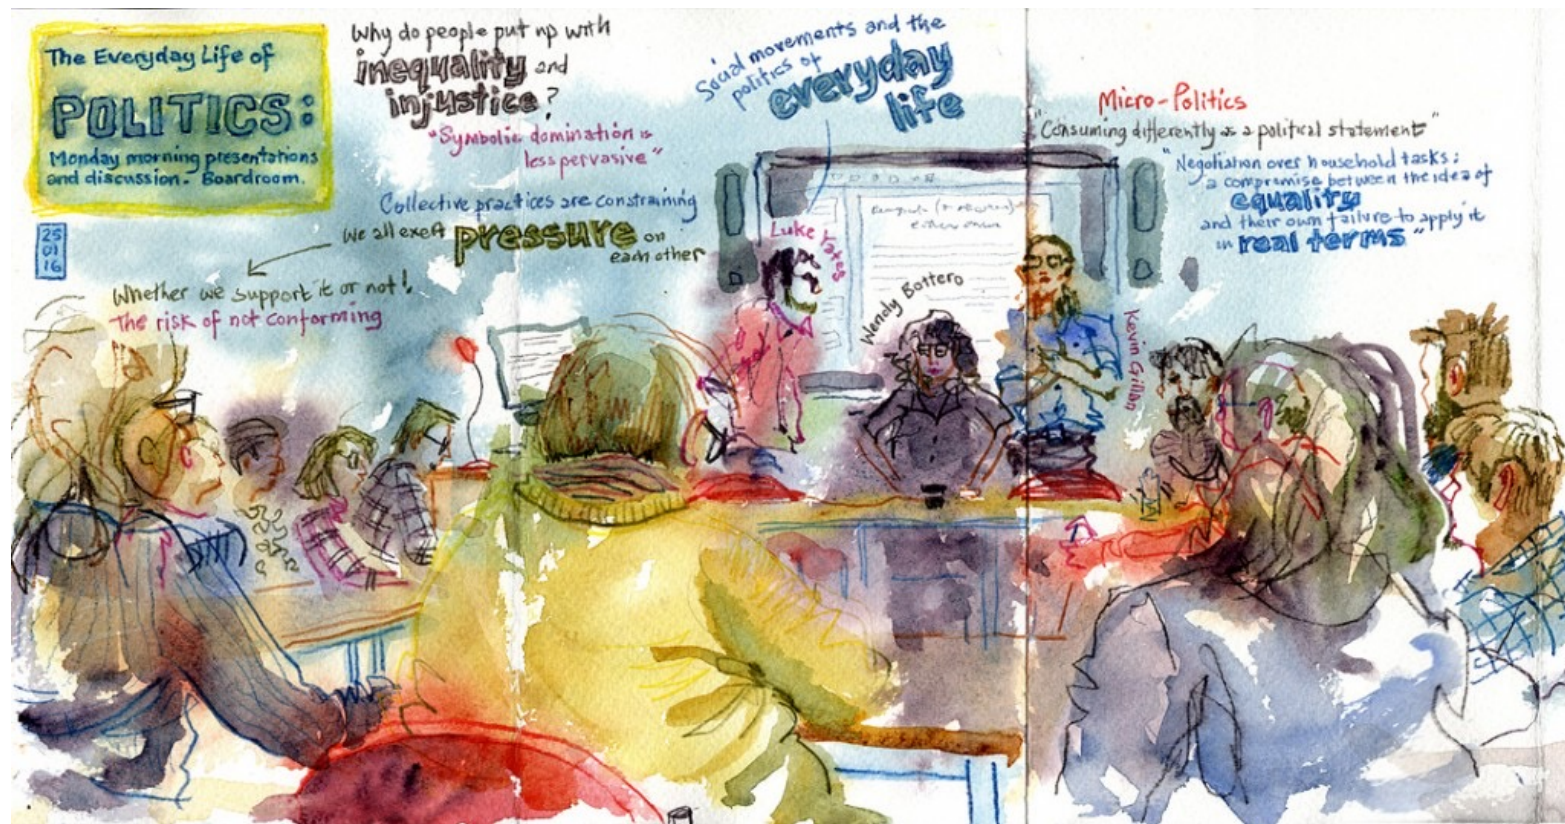 The Everyday Life of
POLITICS:
Monday morning presentations
and discussion. Boardroom.
25
01
16
Why do people put up with
inequality and
injustice?
"Symbolic domination is
less pervasive"
Collective practices are constraining
We all exert pressure on
each other
Whether we support it or not!
The risk of not conforming
Social movements and the
politics of
everyday
life
Luke Yates
Wendy Bottero
Kevin Gillan
Micro-Politics
"Consuming differently as a political statement"
"Negotiation over household tasks:
a compromise between the idea of
equality
and their own failure to apply it
in real terms"